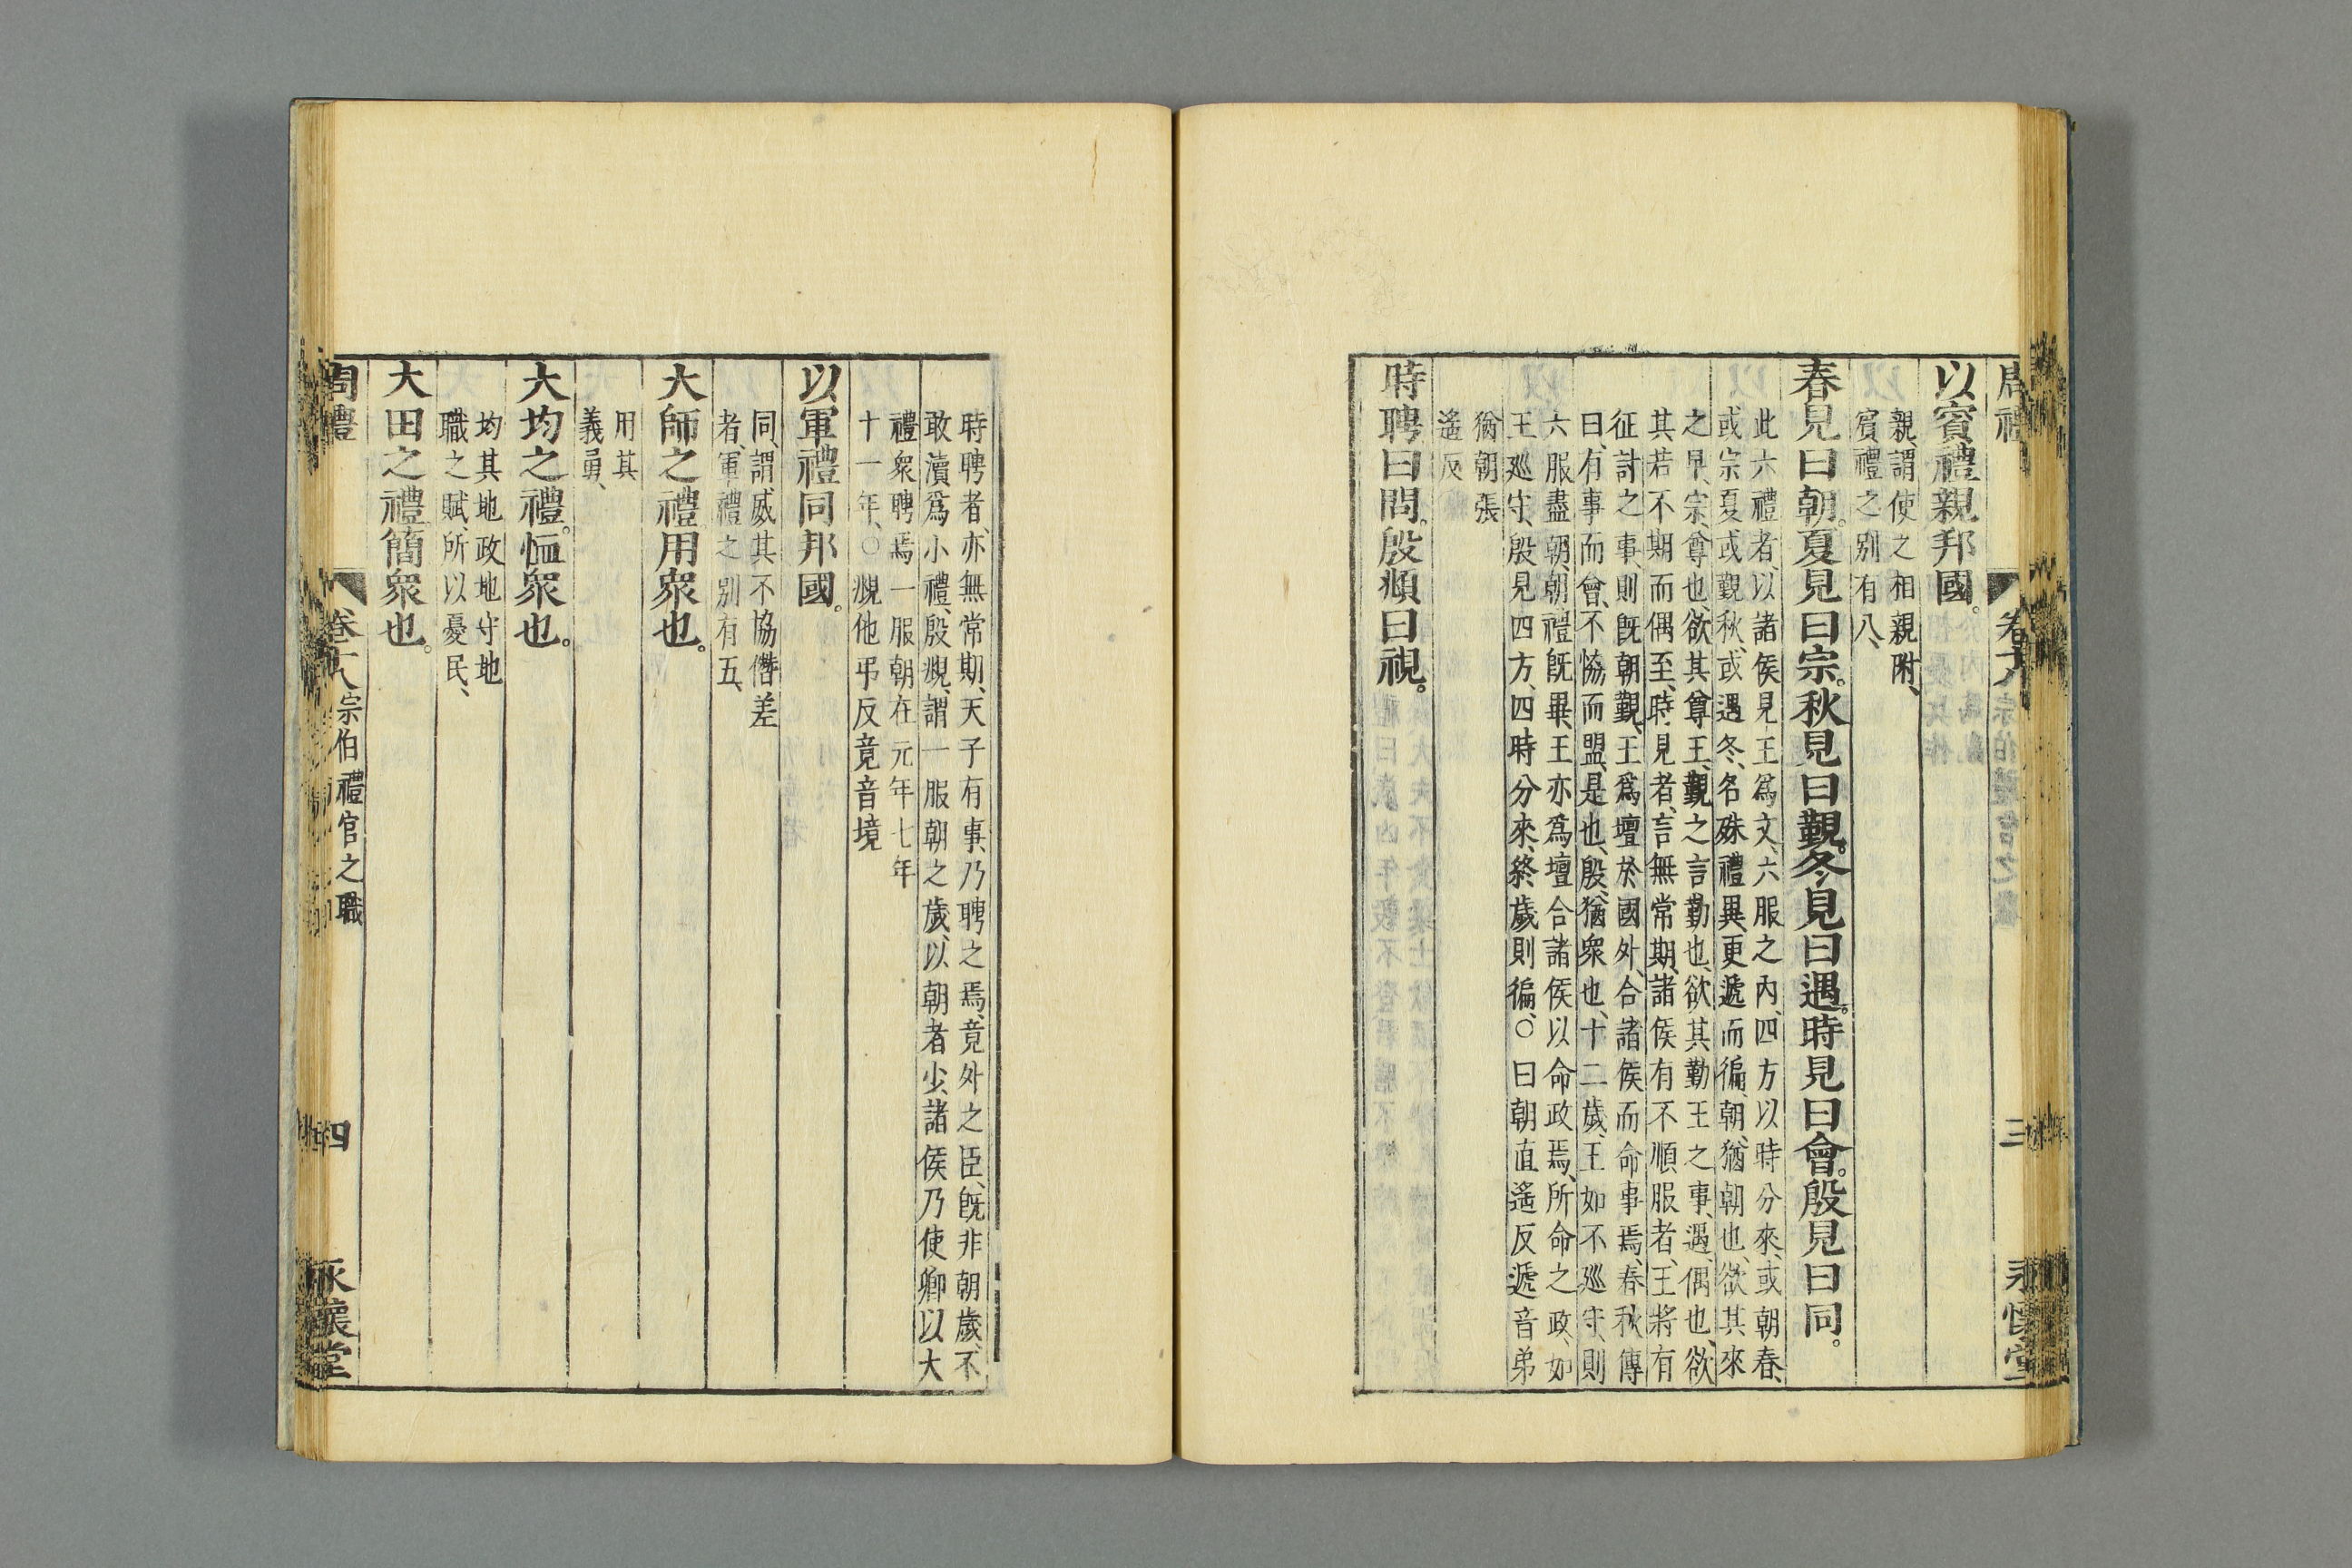 以賓禮親邦國。
親、謂使之相親附、
賓禮之别有八、
春見曰朝。夏見曰宗。秋見曰覲。冬見曰遇。時見曰會。殷見曰同。
此六禮者、以諸侯見王爲文、六服之內、四方以時分來、或朝春、
或宗夏、或覲秋、或遇冬、名殊禮異、更遞而徧、朝、猶朝也、欲其來
之早、宗、尊也、欲其尊王、覲之言勤也、欲其勤王之事、遇、偶也、欲
其若不期而偶至、時見者、言無常期、諸侯有不順服者、王將有
征討之事、則旣朝覲、王爲壇於國外、合諸侯而命事焉、春秋傳
曰、有事而會、不協而盟、是也、殷、猶衆也、十二歲、王如不廵守、則
六服盡朝、朝禮旣畢、王亦爲壇合諸侯以命政焉、所命之政、如
王廵守、殷見四方、四時分來、終歲則徧、○曰朝直遙反遞音弟
猶朝張
遙反
時聘曰問。殷頫曰視。
周禮
三
時聘者、亦無常期、天子有事、乃聘之焉、竟外之臣、旣非朝歲、不
敢瀆爲小禮、殷覜、謂一服朝之歲、以朝者少、諸侯乃使卿以大
禮衆聘焉、一服朝在元年七年
十一年、○覜他弔反竟音境
以軍禮同邦國。
同、謂威其不協僭差
者、軍禮之别有五、
大師之禮。用衆也。
用其
義勇、
大均之禮。恤衆也。
均其地政地守地
職之賦、所以憂民、
大田之禮。簡衆也。
周禮
卷十八 宗伯禮官之職
四
永懷堂